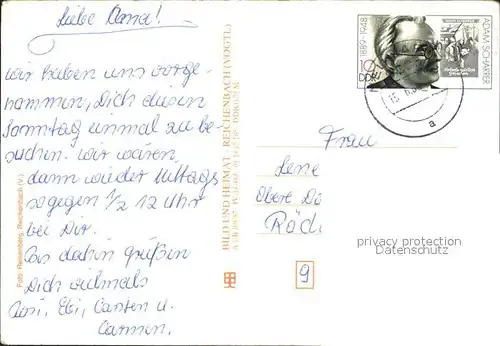 Liebe Oma!
wir haben uns vorge-
nommen, Dich diesen
Sonntag einmal zu be-
suchen. wir wären
dann wieder Mittags
so gegen 1/2 12 Uhr
bei Dir.
Bis dahin grüßen
Dich vielmals
Evi, Carsten u.
Carmen.
Foto: Reisenberg, Reichenbach (V.)
BILD UND HEIMAT REICHENBACH (VOGTL)
1889-1948
ADAM SCHARRER
10
DDR
15
a
Frau
Lene
Obere
9
privacy protection
Datenschutz